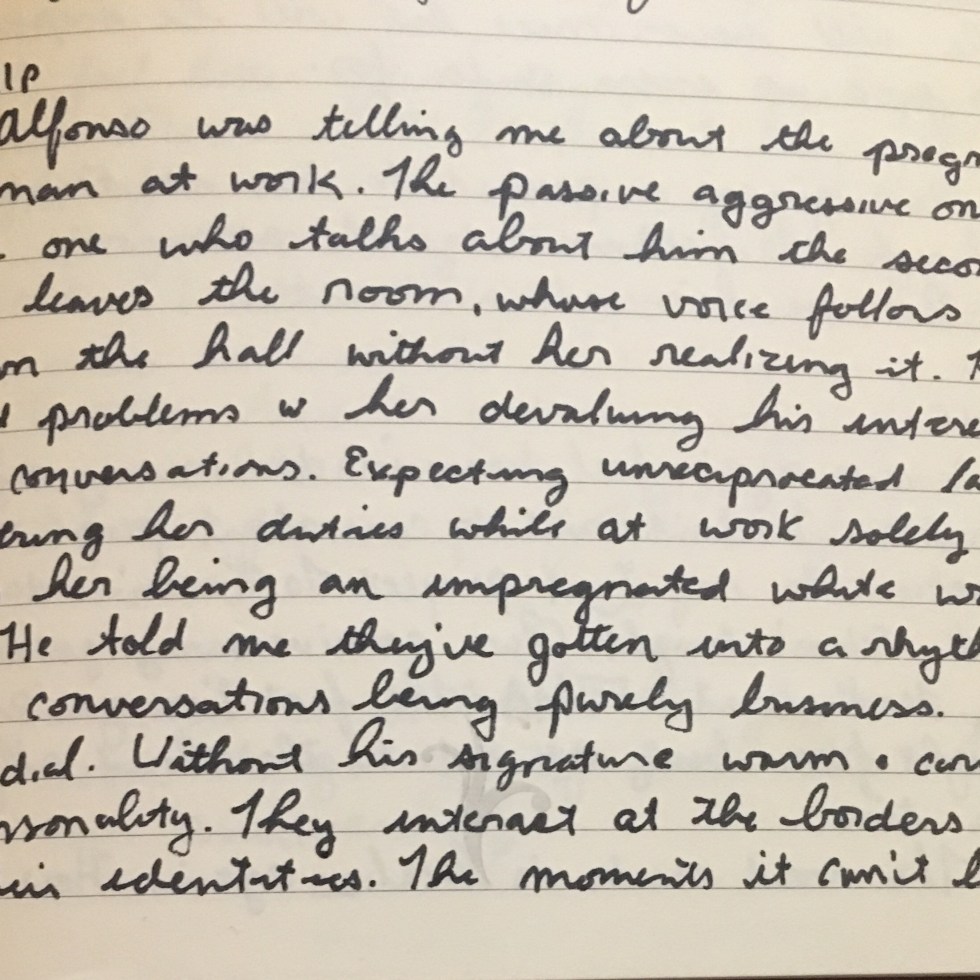 1P
Alfonso was telling me about the pregn
man at work. The passive aggressive on
one who talks about him the seco
leaves the room, whose voice follows
n the hall without her realizing it.
problems w her devaluing his intere
conversations. Expecting unreciprocated la
ering her duties while at work solely
her being an impregnated white wo
He told me they've gotten into a rhyt
conversations being purely business.
dial. Without his signature warm • car
rsonality. They interact at the borders
eir identities. The moments it can't b